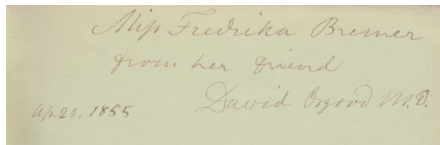 Miss Fredrika Bremer
from her friend
David Osgood M.D.
Ap. 20. 1855